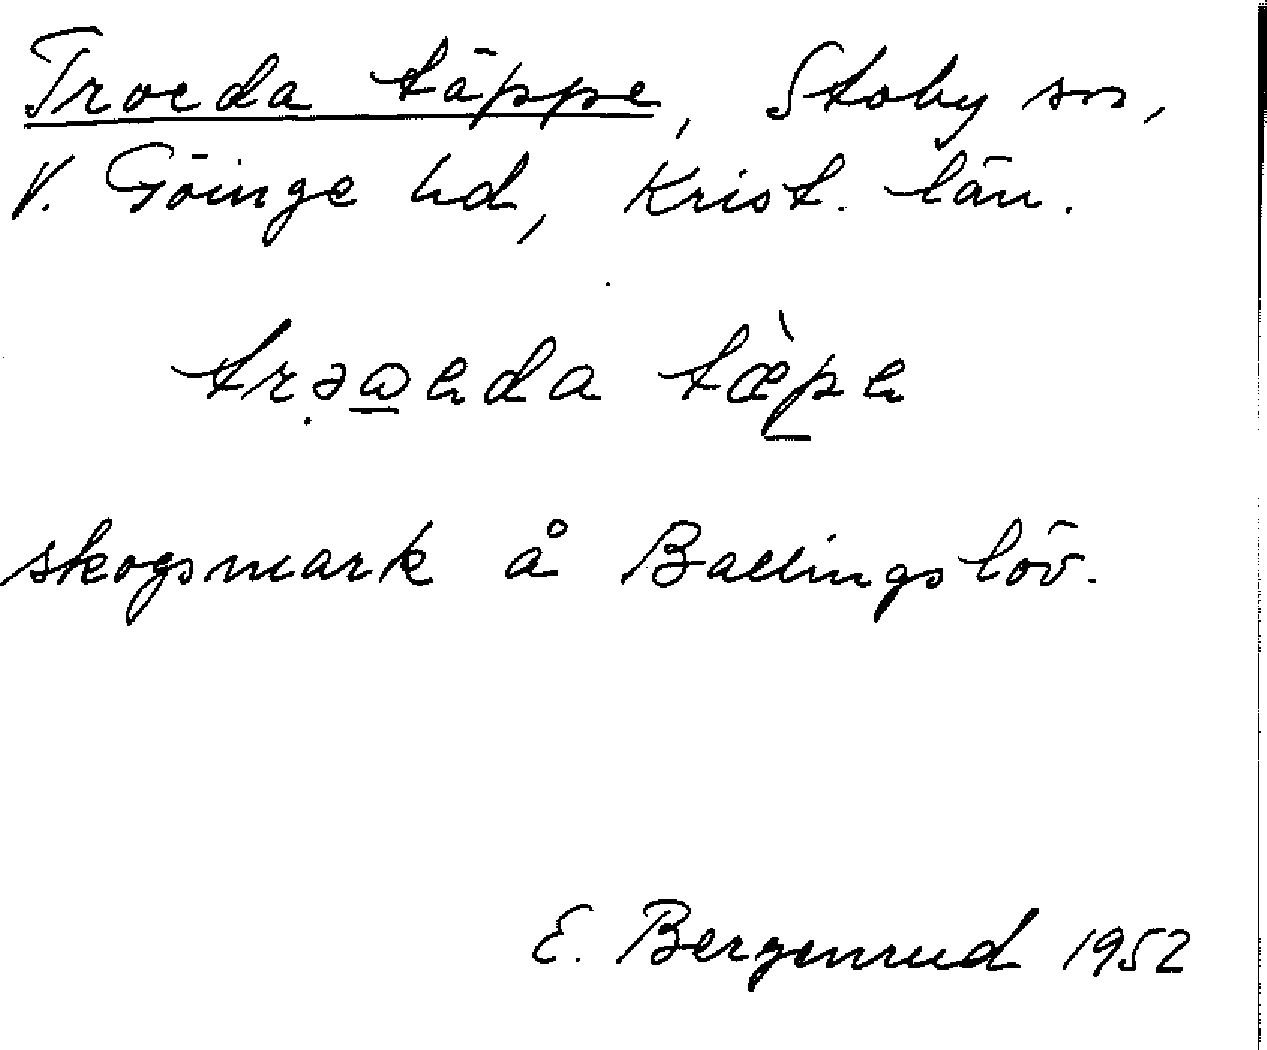 Troeda täppe, Stoby sn,
V. Göinge hd, Krist. län.
trəωeda tæ̀pe
skogsmark å Ballingslöv.
E. Bergenrud 1952